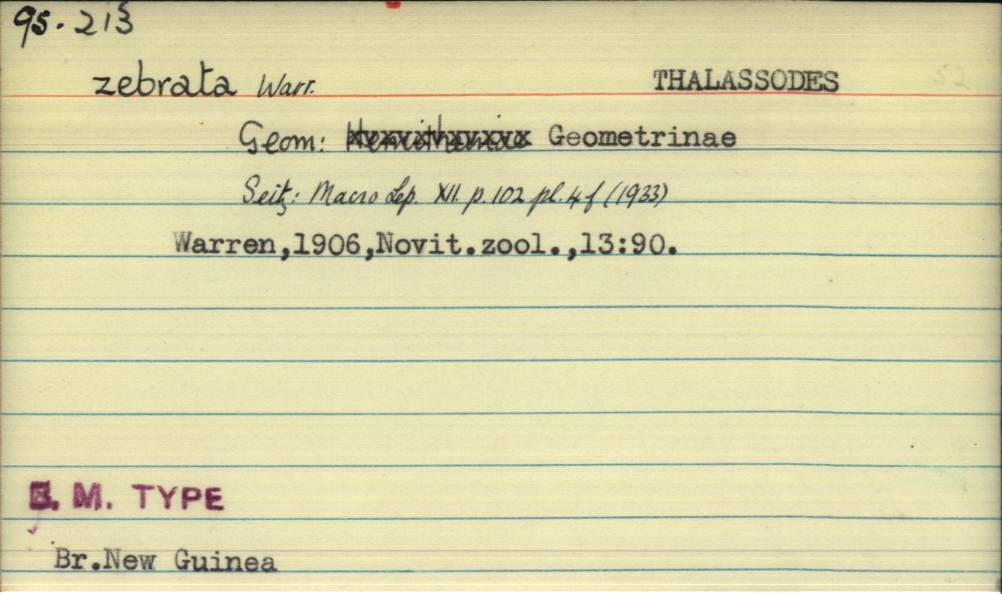 95.213
zebrata Warr. THALASSODES
Geom: Hemitheinae Geometrinae
Seitz: Macro Lep. XII. p. 102 pl. 4 f (1933)
Warren,1906,Novit.zool.,13:90.
B. M. TYPE
Br.New Guinea